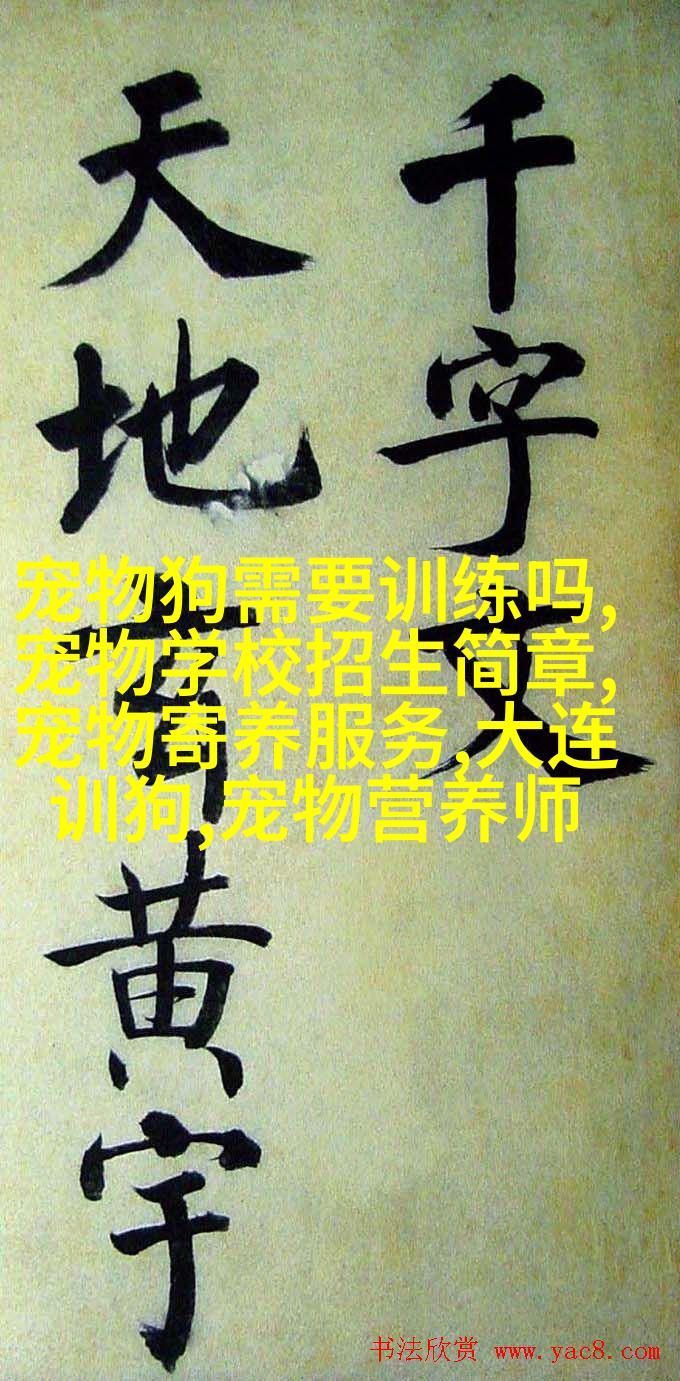 千字文
天地玄黄宇
宠物狗需要训练吗,
宠物学校招生简章,
宠物寄养服务,大连
训狗,宠物营养师
书法欣赏 www.yac8.com